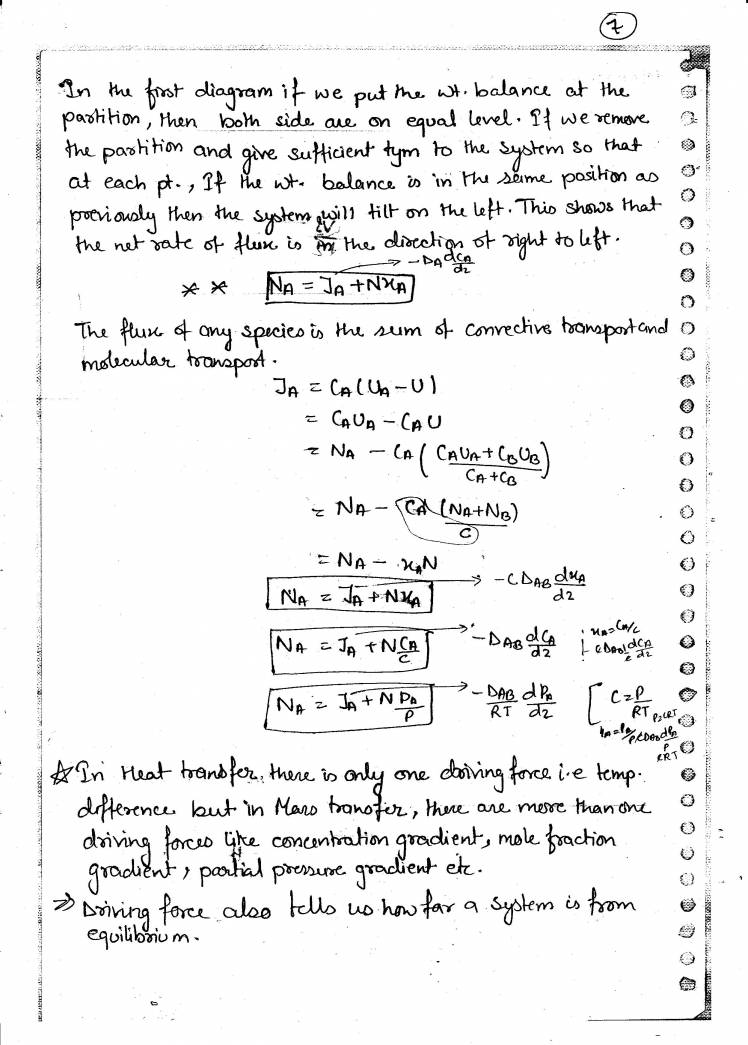 7
In the first diagram if we put the wt. balance at the
partition, then both side are on equal level. If we remove
the partition and give sufficient tym to the system so that
at each pt., If the wt. balance is in the same position as
previously then the system will tilt on the left. This shows that
the net rate of flux is in the direction of right to left.
→ -DA dCA/dz
** NA = JA + NxA
The flux of any species is the sum of convective transport and
molecular transport.
JA = CA(UA - U)
= CAUA - CAU
= NA - CA ( (CAUA + CBUB) / (CA + CB) )
= NA - CA (NA + NB) / C
= NA - xAN
NA = JA + NxA → -CDAB dxA/dz
NA = JA + N CA/C → -DAB dCA/dz ∵ xA = CA/C
NA = JA + N PA/P → -DAB/RT dPA/dz [ C = P/RT
☆ In Heat transfer, there is only one driving force i.e temp.
difference but in Mass transfer, there are more than one
driving forces like concentration gradient, mole fraction
gradient, partial pressure gradient etc.
⇒ Driving force also tells us how far a system is from
equilibrium.